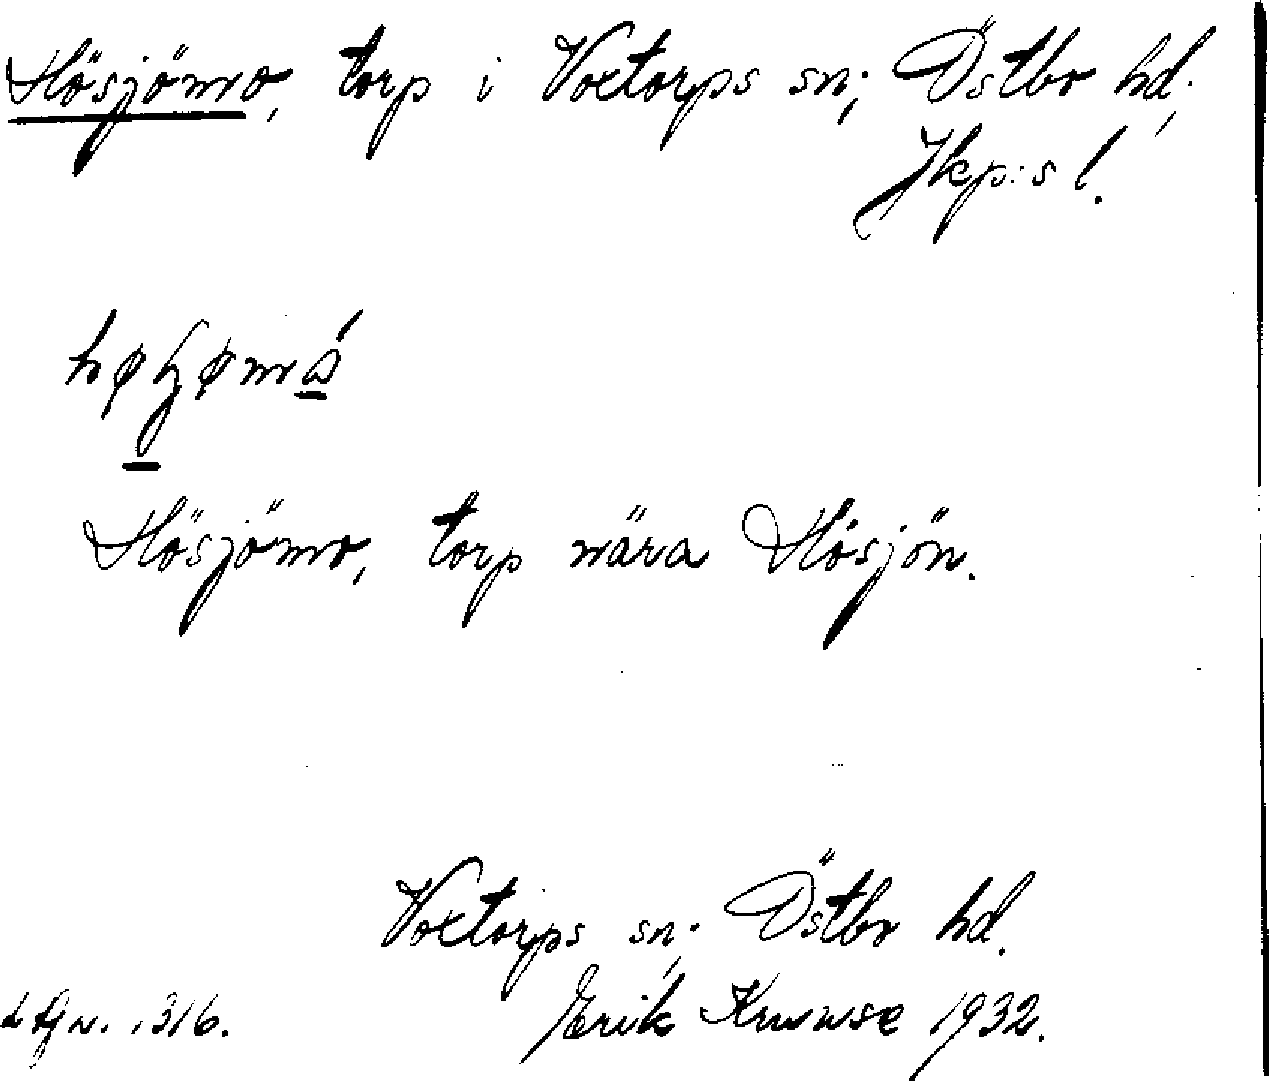 Hösjömo, torp i Voxtorps sn; Östbo hd;
Jkp:s l.
Hösjömo, torp nära Hösjön.
Voxtorps sn; Östbo hd.
316. Erik Kruuse 1932.